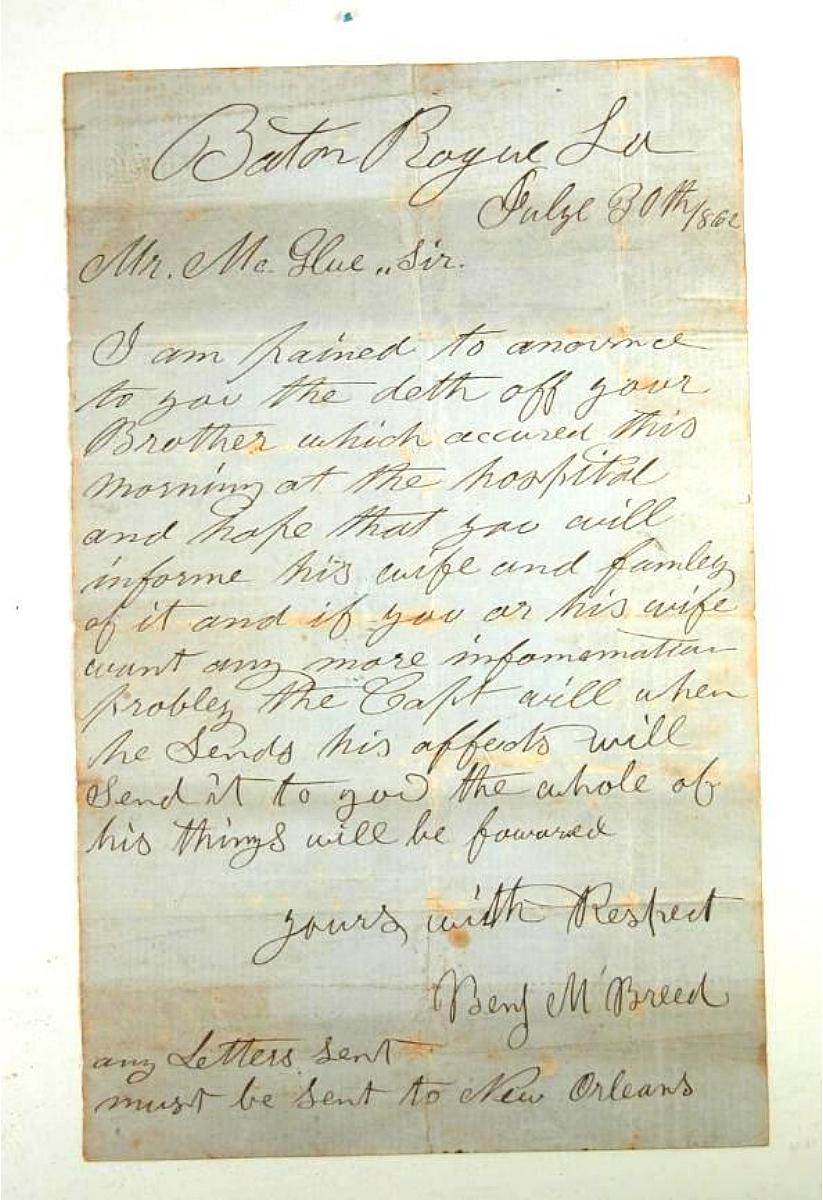 Baton Rogue La
Julye 30th/1862
Mr. Mc. Glue „ Sir.
I am pained to anounce
to you the deth off your
Brother which accured this
morning at the hospital
and hope that you will
informe his wife and famley
of it and if you or his wife
want any more infomemation
probley the Capt will when
he sends his affects will
Send it to you the whole of
his things will be fowared
yours with Respect
Benj M Breed
any Letters sent
must be sent to New Orleans